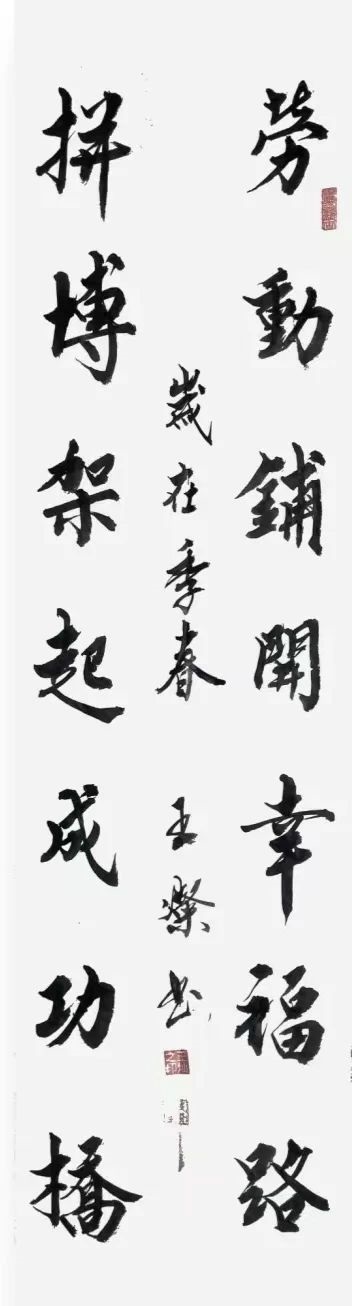 勞動鋪開幸福路
拼搏架起成功橋
歲在季春 王燦书